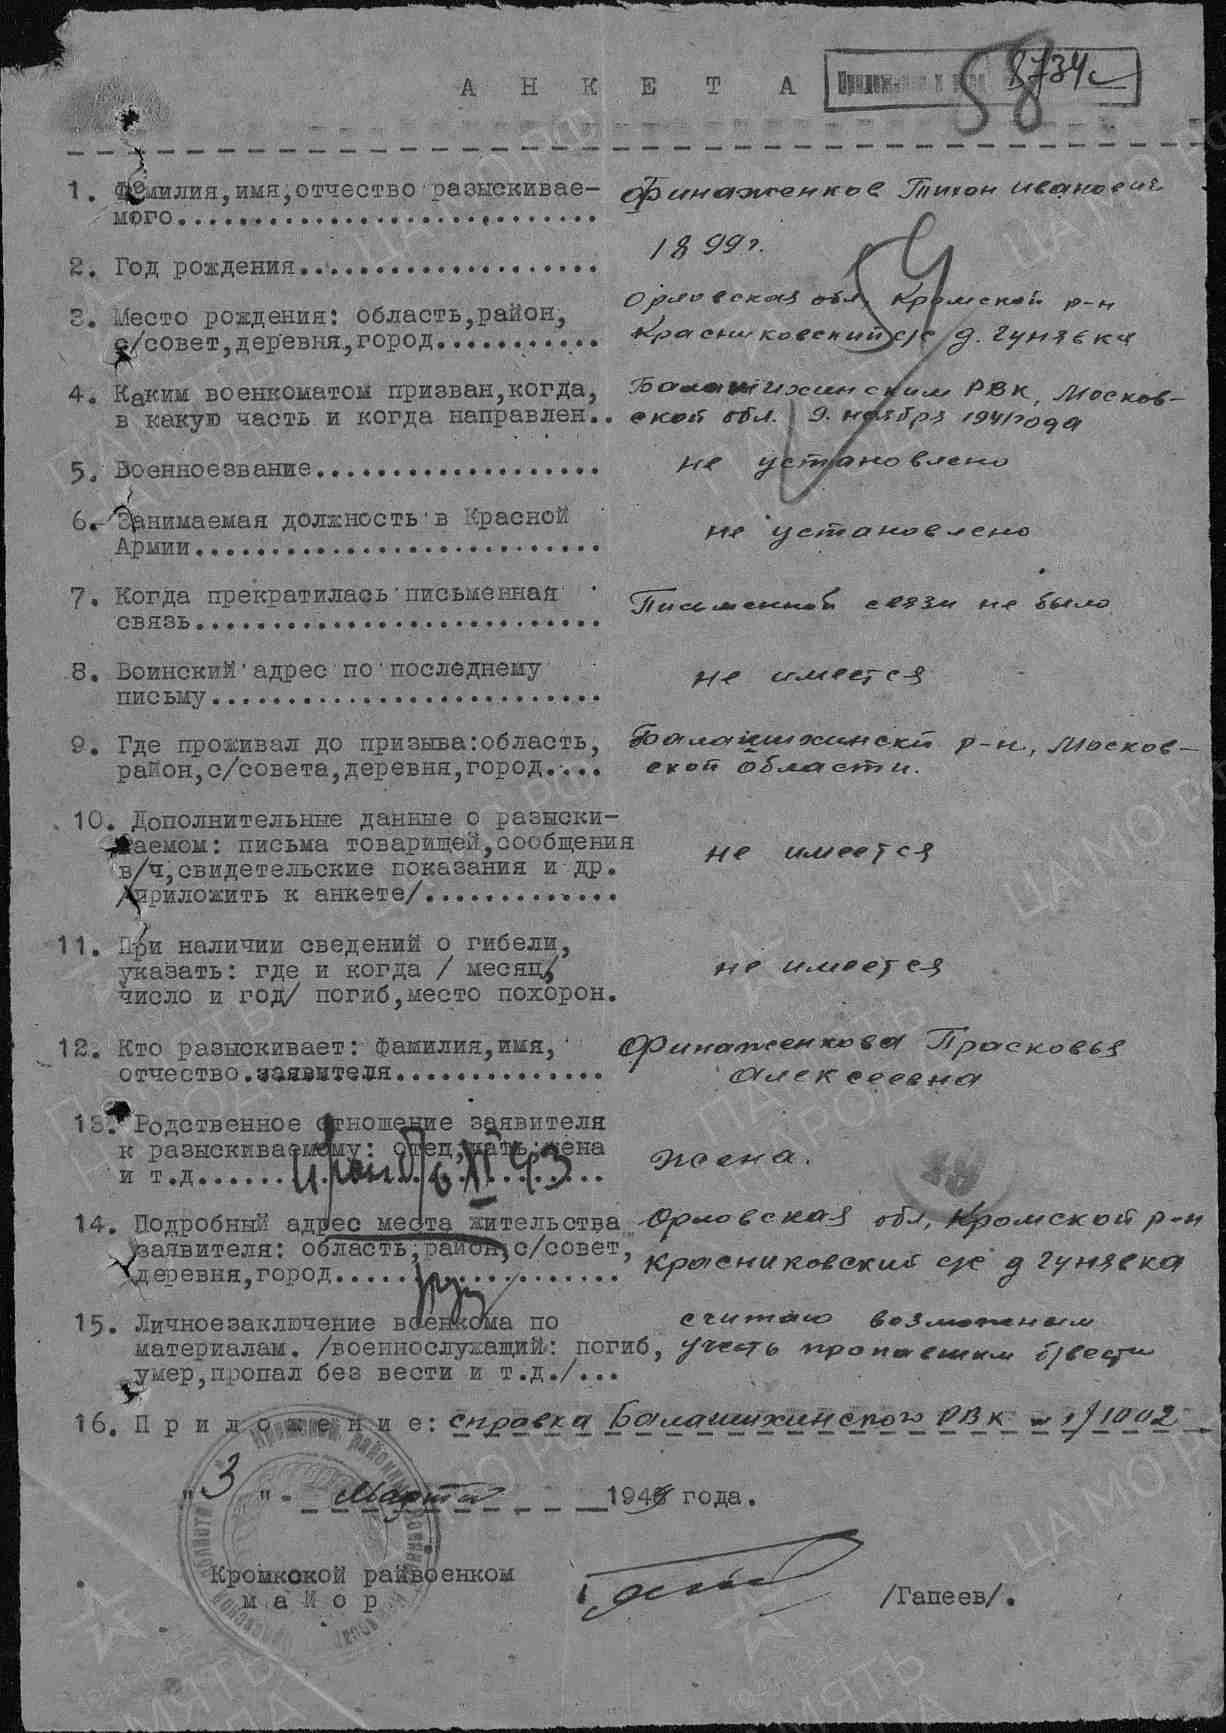 А Н К Е Т А
58
8734с
1. Фамилия,имя,отчество разыскивае- Финаженков Тихон Иванович
мого............................
1899г.
2. Год рождения....................
Орловская обл. Кромской р-н
3. Место рождения: область,район,
с/совет,деревня,город........... Красниковский с/с д. Гунявка
4. Каким военкоматом призван,когда, Балашихинским РВК, Москов-
в какую часть и когда направлен.. ской обл. 9. ноября 1941года
5. Военноезвание................... не установлено
6. Занимаемая должность в Красной
Армии........................... не установлено
7. Когда прекратилась письменная Письменной связи не было
связь...........................
8. Воинский адрес по последнему не имеется
письму..........................
9. Где проживал до призыва:область, Балашихинский р-н, Москов-
район,с/совета,деревня,город.... ской области.
10. Дополнительные данные о разыски-
ваемом: письма товарищей,сообщения не имеется
в/ч,свидетельские показания и др.
/приложить к анкете/.............
11. При наличии сведений о гибели,
указать: где и когда / месяц, не имеется
число и год/ погиб,место похорон.
12. Кто разыскивает: фамилия,имя, Финаженкова Прасковья
отчество.заявителя.............. Алексеевна
13. Родственное отношение заявителя
к разыскиваемому: отец,мать,жена жена.
и т.д...........................
XI 43
14. Подробный адрес места жительства Орловская обл, Кромской р-н
заявителя: область,район,с/совет, Красниковский с/с д Гунявка
деревня,город...................
15. Личноезаключение военкома по считаю возможным
материалам. /военнослужащий: погиб, учесть пропавшим б/вести
умер,пропал без вести и т.д./...
16. П р и л о ж е н и е: справка Балашихинского РВК № 1/1002
"3" Марта 194 года.
Кромкской райвоенком
м а й о р /Гапеев/.